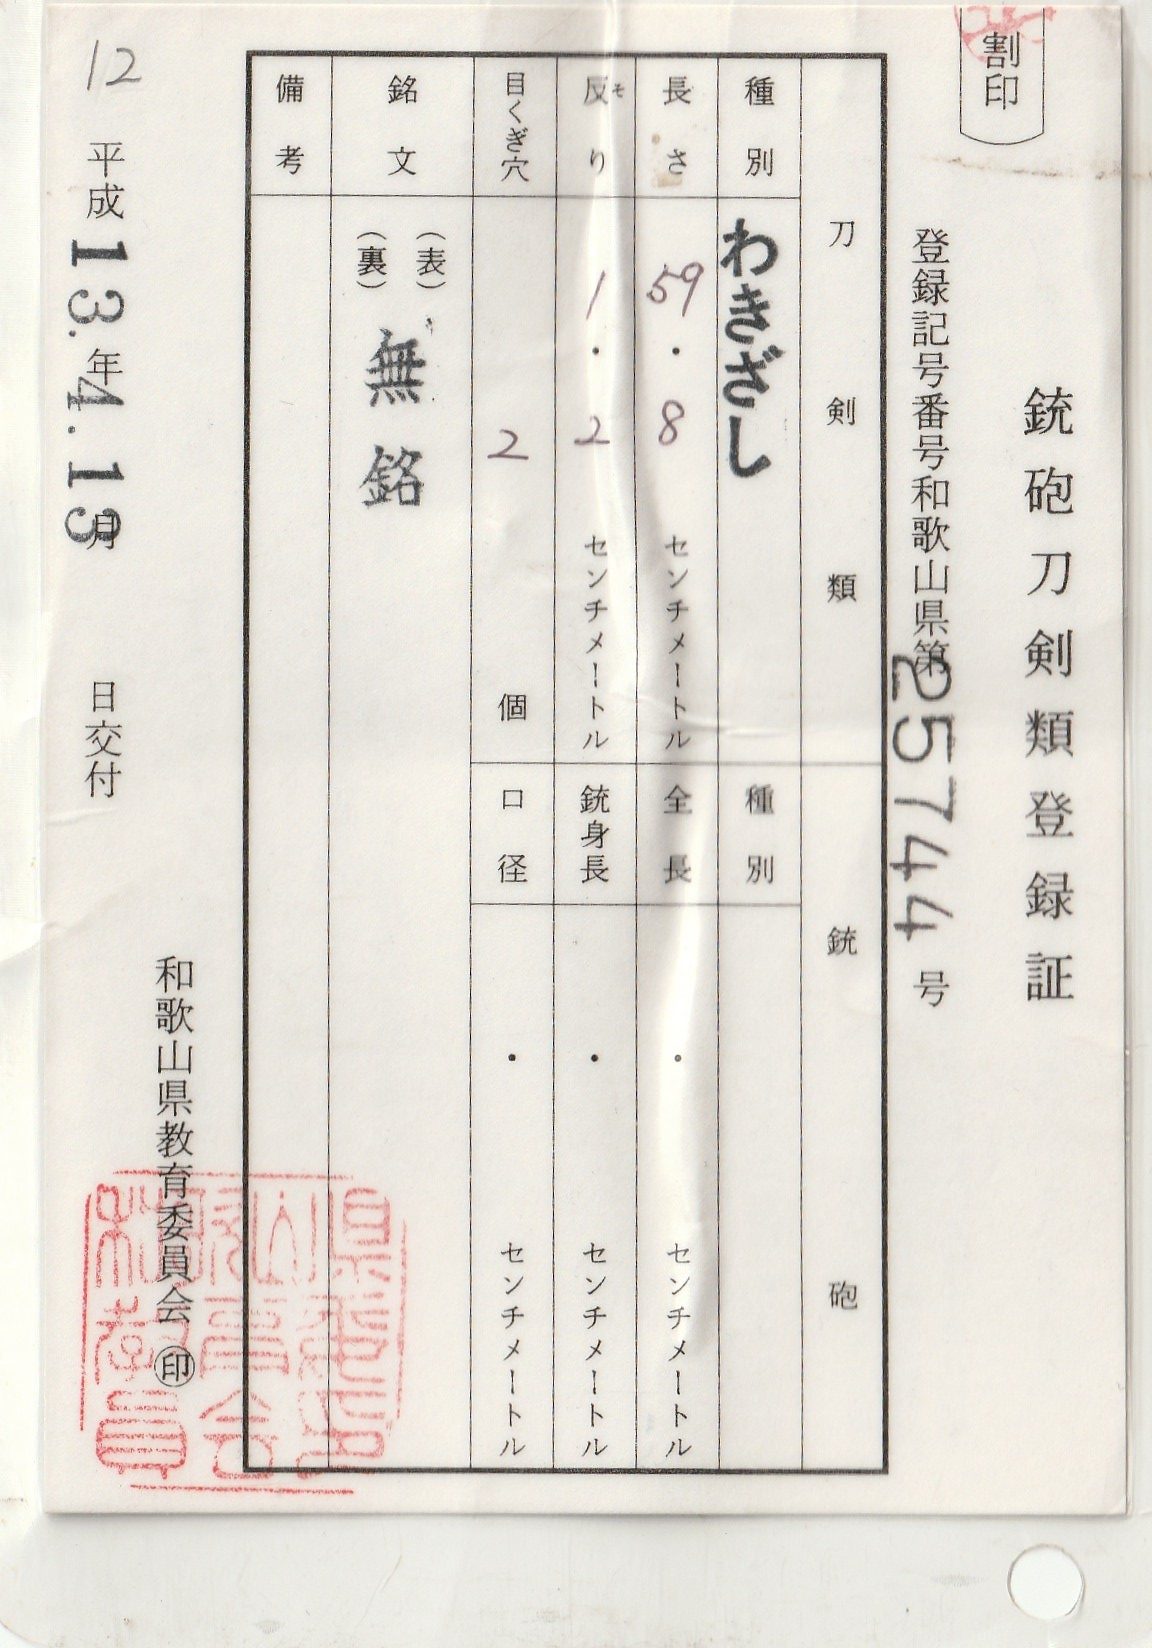 割印
銃砲刀剣類登録証
登録記号番号和歌山県第25744号
刀剣類
銃砲
種別
わきざし
種別
長さ
59・8
センチメートル
全長
・
センチメートル
反り
そ
1・2
センチメートル
銃身長
・
センチメートル
目くぎ穴
2
個
口径
・
センチメートル
銘文
(表)
(裏)
無銘
備考
和歌山県教育委員会 印
平成13.年4.13月 日交付
12